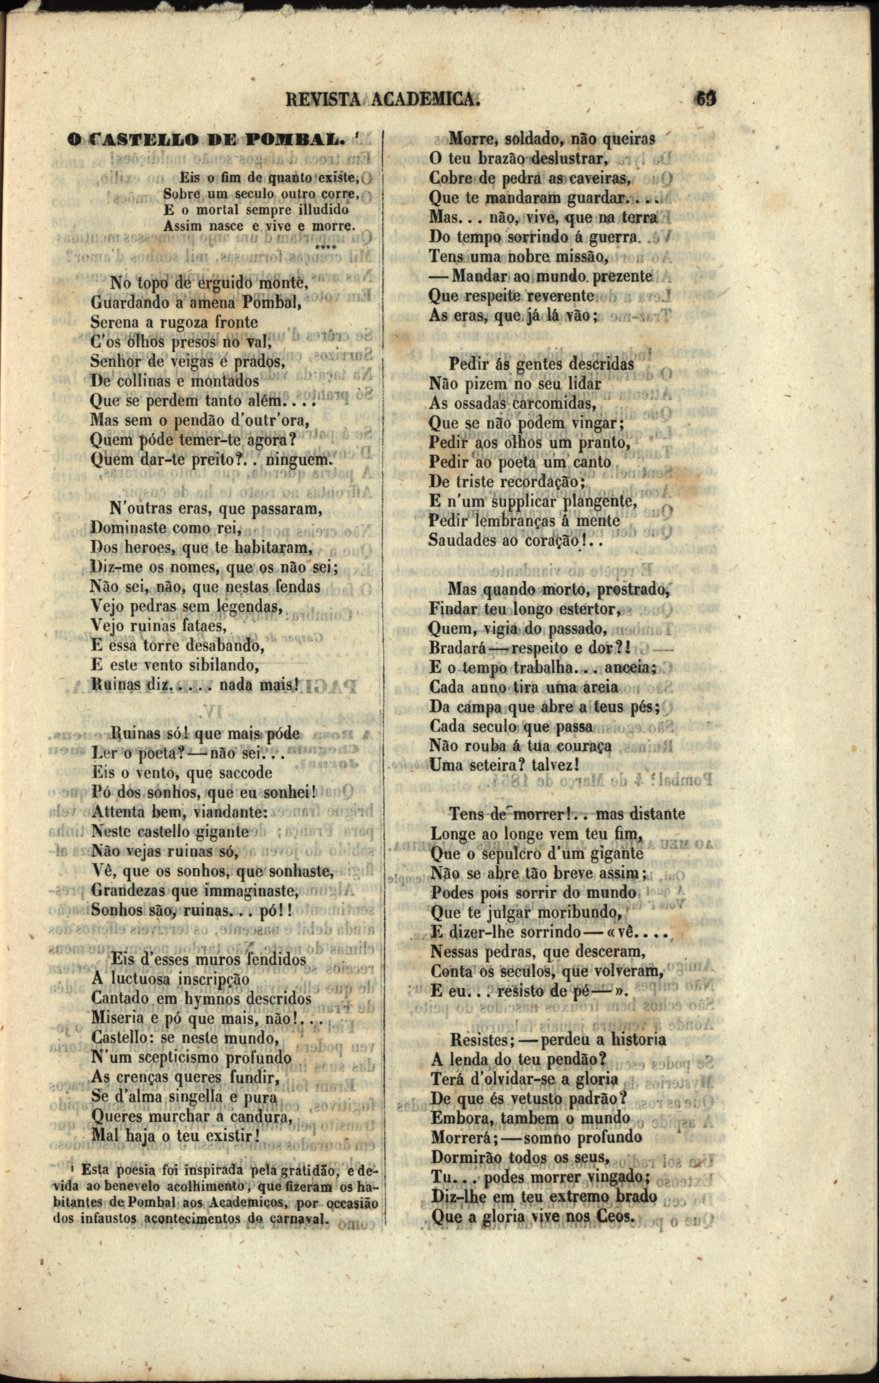 REVISTA ACADEMICA. 69
O CASTELLO DE POMBAL. ¹
Eis o fim de quanto existe,
Sobre um seculo outro corre,
E o mortal sempre illudido
Assim nasce e vive e morre.
****
No topo de erguido monte,
Guardando a amena Pombal,
Serena a rugoza fronte
C'os olhos presos no val,
Senhor de veigas e prados,
De collinas e montados
Que se perdem tanto além....
Mas sem o pendão d'outr'ora,
Quem póde temer-te agora?
Quem dar-te preito?.. ninguem.
N'outras eras, que passaram,
Dominaste como rei,
Dos heroes, que te habitaram,
Diz-me os nomes, que os não sei;
Não sei, não, que nestas fendas
Vejo pedras sem legendas,
Vejo ruinas fataes,
E essa torre desabando,
E este vento sibilando,
Ruinas diz..... nada mais!
Ruinas só! que mais póde
Ler o poeta?—não sei...
Eis o vento, que saccode
Pó dos sonhos, que eu sonhei!
Attenta bem, viandante:
Neste castello gigante
Não vejas ruinas só,
Vê, que os sonhos, que sonhaste,
Grandezas que immaginaste,
Sonhos são, ruinas... pó!!
Eis d'esses muros fendidos
A luctuosa inscripção
Cantado em hymnos descridos
Miseria e pó que mais, não!...
Castello: se neste mundo,
N'um scepticismo profundo
As crenças queres fundir,
Se d'alma singella e pura
Queres murchar a candura,
Mal haja o teu existir!
¹ Esta poesia foi inspirada pela gratidão, e de-
vida ao benevelo acolhimento, que fizeram os ha-
bitantes de Pombal aos Academicos, por occasião
dos infaustos acontecimentos do carnaval.
Morre, soldado, não queiras
O teu brazão deslustrar,
Cobre de pedra as caveiras,
Que te mandaram guardar....
Mas... não, vive, que na terra
Do tempo sorrindo á guerra
Tens uma nobre missão,
—Mandar ao mundo prezente
Que respeite reverente
As eras, que já lá vão;
Pedir ás gentes descridas
Não pizem no seu lidar
As ossadas carcomidas,
Que se não podem vingar;
Pedir aos olhos um pranto,
Pedir ao poeta um canto
De triste recordação;
E n'um supplicar plangente,
Pedir lembranças á mente
Saudades ao coração!..
Mas quando morto, prostrado,
Findar teu longo estertor,
Quem, vigia do passado,
Bradará—respeito e dor?!
E o tempo trabalha... anceia;
Cada anno tira uma areia
Da campa que abre a teus pés;
Cada seculo que passa
Não rouba á tua couraça
Uma seteira? talvez!
Tens de morrer!.. mas distante
Longe ao longe vem teu fim,
Que o sepulcro d'um gigante
Não se abre tão breve assim;
Podes pois sorrir do mundo
Que te julgar moribundo,
E dizer-lhe sorrindo—«vê....
Nessas pedras, que desceram,
Conta os seculos, que volveram,
E eu... resisto de pé—».
Resistes;—perdeu a historia
A lenda do teu pendão?
Terá d'olvidar-se a gloria
De que és vetusto padrão?
Embora, tambem o mundo
Morrerá;—somno profundo
Dormirão todos os seus,
Tu... podes morrer vingado;
Diz-lhe em teu extremo brado
Que a gloria vive nos Ceos.